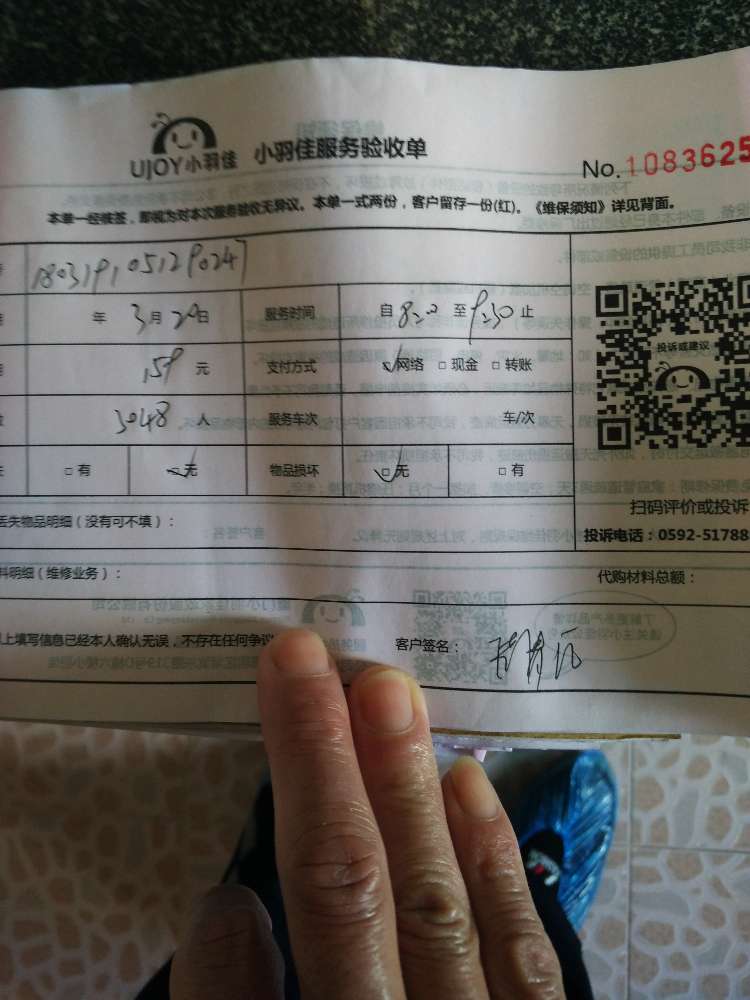 UJOY小羽佳 小羽佳服务验收单
No.1083625
本单一经被签，即视为对本次服务验收无异议。本单一式两份，客户留存一份(红)。《维保须知》详见背面。
1803191051290247
年 3月20日 服务时间 自8:00至9:30止
159元 支付方式 网络 □现金 □转账
3048人 服务车次 车/次
□有 □无 物品损坏 □无 □有
投诉或建议
扫码评价或投诉
丢失物品明细（没有可不填）：
投诉电话：0592-51788
料明细（维修业务）： 代购材料总额：
上填写信息已经本人确认无误，不存在任何争议 客户签名：